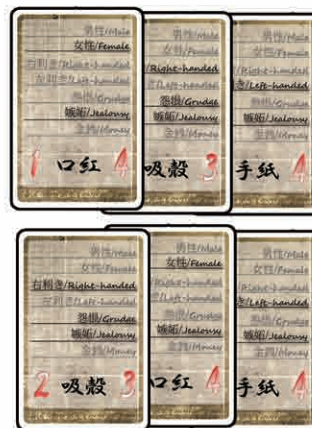 男性/Male
女性/Female
右利き/Right-handed
左利き/Left-handed
怨恨/Grudge
嫉妬/Jealousy
金銭/Money
1 口紅 4
男性/Male
女性/Female
/Right-handed
き/Left-handed
怨恨/Grudge
嫉妬/Jealousy
金銭/Money
吸殻 3
男性/Male
女性/Female
/Right-handed
き/Left-handed
怨恨/Grudge
嫉妬/Jealousy
金銭/Money
手紙 4
男性/Male
女性/Female
右利き/Right-handed
左利き/Left-handed
怨恨/Grudge
嫉妬/Jealousy
金銭/Money
2 吸殻 3
男性/Male
女性/Female
/Right-handed
き/Left-handed
怨恨/Grudge
嫉妬/Jealousy
金銭/Money
口紅 4
男性/Male
女性/Female
/Right-handed
き/Left-handed
怨恨/Grudge
嫉妬/Jealousy
金銭/Money
手紙 4